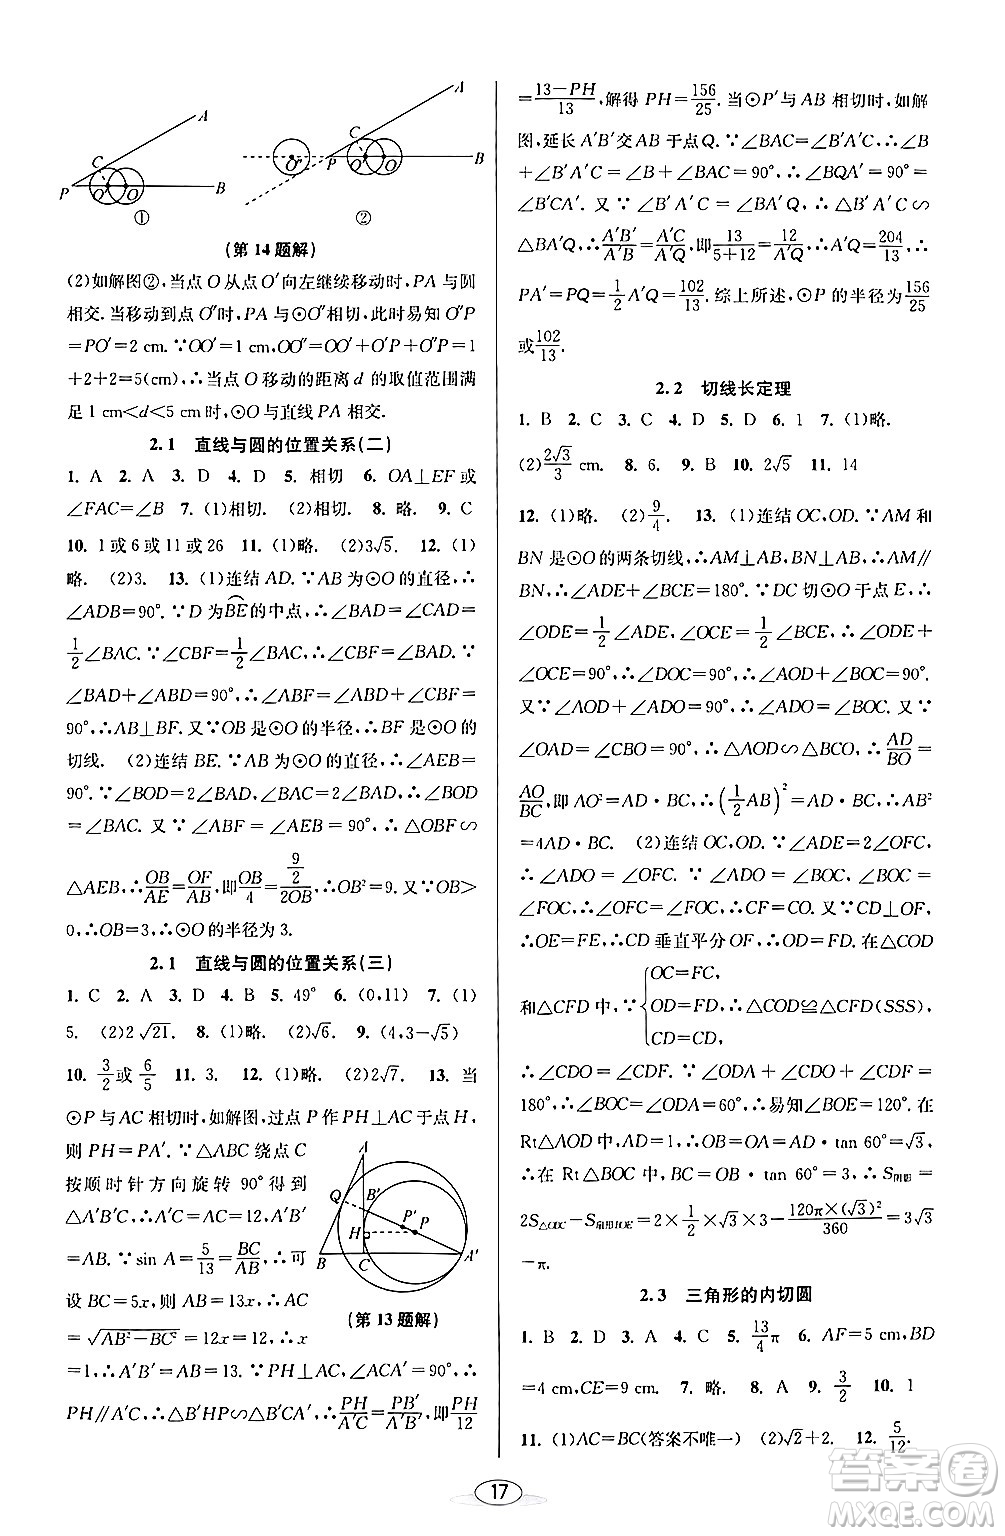 A
C
P O′ O B
①
A
C
O″ P O′ O B
②
(第14题解)
(2)如解图②,当点O从点O′向左继续移动时,PA与圆
相交.当移动到点O″时,PA与⊙O″相切,此时易知O″P
=PO′=2 cm.∵OO′=1,∴OO″=OO′+O′P+O″P=1
+2+2=5(cm),∴当点O移动的距离d的取值范围满
足1 cm<d<5 cm时,⊙O与直线PA相交.
2.1 直线与圆的位置关系(二)
1. A 2. A 3. D 4. D 5. 相切 6. OA⊥EF或
∠FAC=∠B 7. (1)相切. (2)相切. 8. 略. 9. C
10. 1或6或11或26 11. (1)相切. (2)3√5. 12. (1)
略. (2)3. 13. (1)连结AD.∵AB为⊙O的直径,∴
∠ADB=90°.∵D为BE⌢的中点,∴∠BAD=∠CAD=
1/2∠BAC.∵∠CBF=1/2∠BAC,∴∠CBF=∠BAD.∵
∠BAD+∠ABD=90°,∴∠ABF=∠ABD+∠CBF=
90°,∴AB⊥BF.又∵OB是⊙O的半径,∴BF是⊙O的
切线. (2)连结BE.∵AB为⊙O的直径,∴∠AEB=
90°.∵∠BOD=2∠BAD,∠BAC=2∠BAD,∴∠BOD
=∠BAC.又∵∠ABF=∠AEB=90°,∴△OBF∽
△AEB,∴OB/AE=OF/AB,即OB/4=(9/2)/2OB,∴OB²=9.又∵OB>
0,∴OB=3,∴⊙O的半径为3.
2.1 直线与圆的位置关系(三)
1. C 2. A 3. D 4. A 5. 49° 6. (0,11) 7. (1)
5. (2)2√21. 8. (1)略. (2)√6. 9. (4,3-√5)
10. 3/2或6/5 11. 3. 12. (1)略. (2)2√7. 13. 当
⊙P与AC相切时,如解图,过点P作PH⊥AC于点H,
则PH=PA′.∵△ABC绕点C
按顺时针方向旋转90°得到
△A′B′C,∴∠ACA′=90°,∠A′
=∠A.∵sin A=5/13=BC/AB,∴可
设BC=5x,则AB=13x,∴AC
=√(AB²-BC²)=12x=12,∴x=
1,∴A′B′=AB=13.∵PH⊥AC,∠ACA′=90°,∴
PH∥A′C,∴△B′HP∽△B′CA′,∴PH/A′C=PB′/A′B′,即PH/12
A
Q B′ P′ P
H
B C A′
(第13题解)
=(13-PH)/13,解得PH=156/25.当⊙P′与AB相切时,如解
图,延长A′B′交AB于点Q.∵∠BAC=∠B′A′C,∠B
+∠B′A′C=∠B+∠BAC=90°,∴∠BQA′=90°=
∠B′CA′.又∵∠B′A′C=∠BA′Q,∴△B′A′C∽
△BA′Q,∴A′B′/A′B=A′C/A′Q,即13/(5+12)=12/A′Q,∴A′Q=204/13,∴
PA′=PQ=1/2A′Q=102/13.综上所述,⊙P的半径为156/25
或102/13.
2.2 切线长定理
1. B 2. C 3. C 4. D 5. D 6. 1 7. (1)略.
(2)2√3/3 cm. 8. 6. 9. B 10. 2√5 11. 14
12. (1)略. (2)9/4. 13. (1)连结OC,OD.∵AM和
BN是⊙O的两条切线,∴AM⊥AB,BN⊥AB,∴AM∥
BN,∴∠ADE+∠BCE=180°.∵DC切⊙O于点E,∴
∠ODE=1/2∠ADE,∠OCE=1/2∠BCE,∴∠ODE+
∠OCE=90°,∴∠DOC=90°,∴∠AOD+∠BOC=90°.
又∵∠AOD+∠ADO=90°,∴∠ADO=∠BOC.又∵
∠OAD=∠CBO=90°,∴△AOD∽△BCO,∴AD/BO=
AO/BC,即AO²=AD·BC,∴(1/2AB)²=AD·BC,∴AB²
=4AD·BC. (2)连结OC,OD.∵∠ADE=2∠OFC,
∴∠ADO=∠OFC.∵∠ADO=∠BOC,∠BOC=
∠FOC,∴∠OFC=∠FOC,∴CF=CO.又∵CD⊥OF,
∴OE=FE,∴CD垂直平分OF,∴OD=FD.在△COD
和△CFD中,∵{OC=FC, OD=FD, CD=CD,∴△COD≌△CFD(SSS),
∴∠CDO=∠CDF.∵∠ODA+∠CDO+∠CDF=
180°,∴∠BOC=∠ODA=60°,∴易知∠BOE=120°.在
Rt△AOD中,∵AD=1,∴OB=OA=AD·tan 60°=√3,
∴在Rt△BOC中,BC=OB·tan 60°=3,∴S阴影=
2S△OBC-S扇形BOE=2×1/2×√3×3-120π×(√3)²/360=3√3
-π.
2.3 三角形的内切圆
1. B 2. D 3. A 4. C 5. 13/4π 6. AF=5 cm,BD
=4 cm,CE=9 cm. 7. 略. 8. A 9. 3/2 10. 1
11. (1)AC=BC(答案不唯一) (2)√2+2. 12. 5/12.
17
答案圈
MXQE.COM